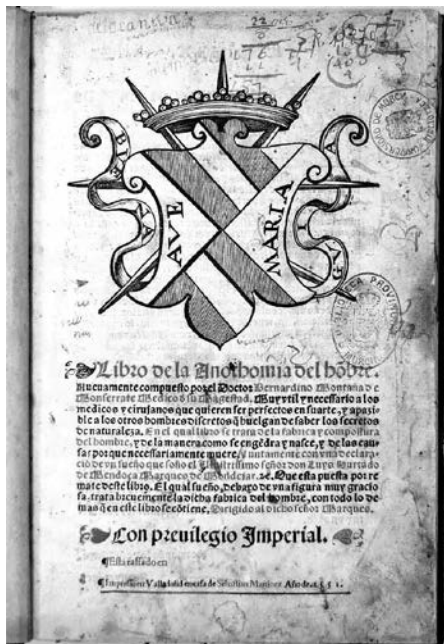 AVE
MARIA
BVENA
GVIA
Libro de la Anothomia del hõbre.
Nueuamente compuesto por el Doctor Bernardino Montaña de
Monserrate Medico d̃ su Magestad. Muy vtil y necessario a los
medicos y cirujanos que quieren ser perfectos en su arte, y apazi
ble a los otros hombres discretos q̃ huelgan de saber los secretos
de naturaleza. En el qual libro se trata de la fabrica y compostura
del hombre, y de la manera como se engẽdra y nasce, y de las cau
sas porque necessariamente muere. Juntamente con vna declara
ció de vn sueño que soño el Illustrissimo señor don Luys Hurtado
de Mendoça Marques de Mondejar. zc. Que esta puesta por re
mate deste libro. El qual sueño, debaxo de vna figura muy gracio
sa, trata breuemente la dicha fabrica del hombre, con todo lo de
mas q̃ en este libro se cõtiene. Dirigido al dicho señor Marques.
Con preuilegio Imperial.
¶Esta tassado en
¶Impresso en Valladolid en casa de Sebastian Martinez Año de. 1551.